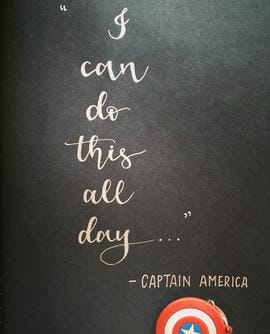 “ I
can
do
this
all
day...”
- CAPTAIN AMERICA